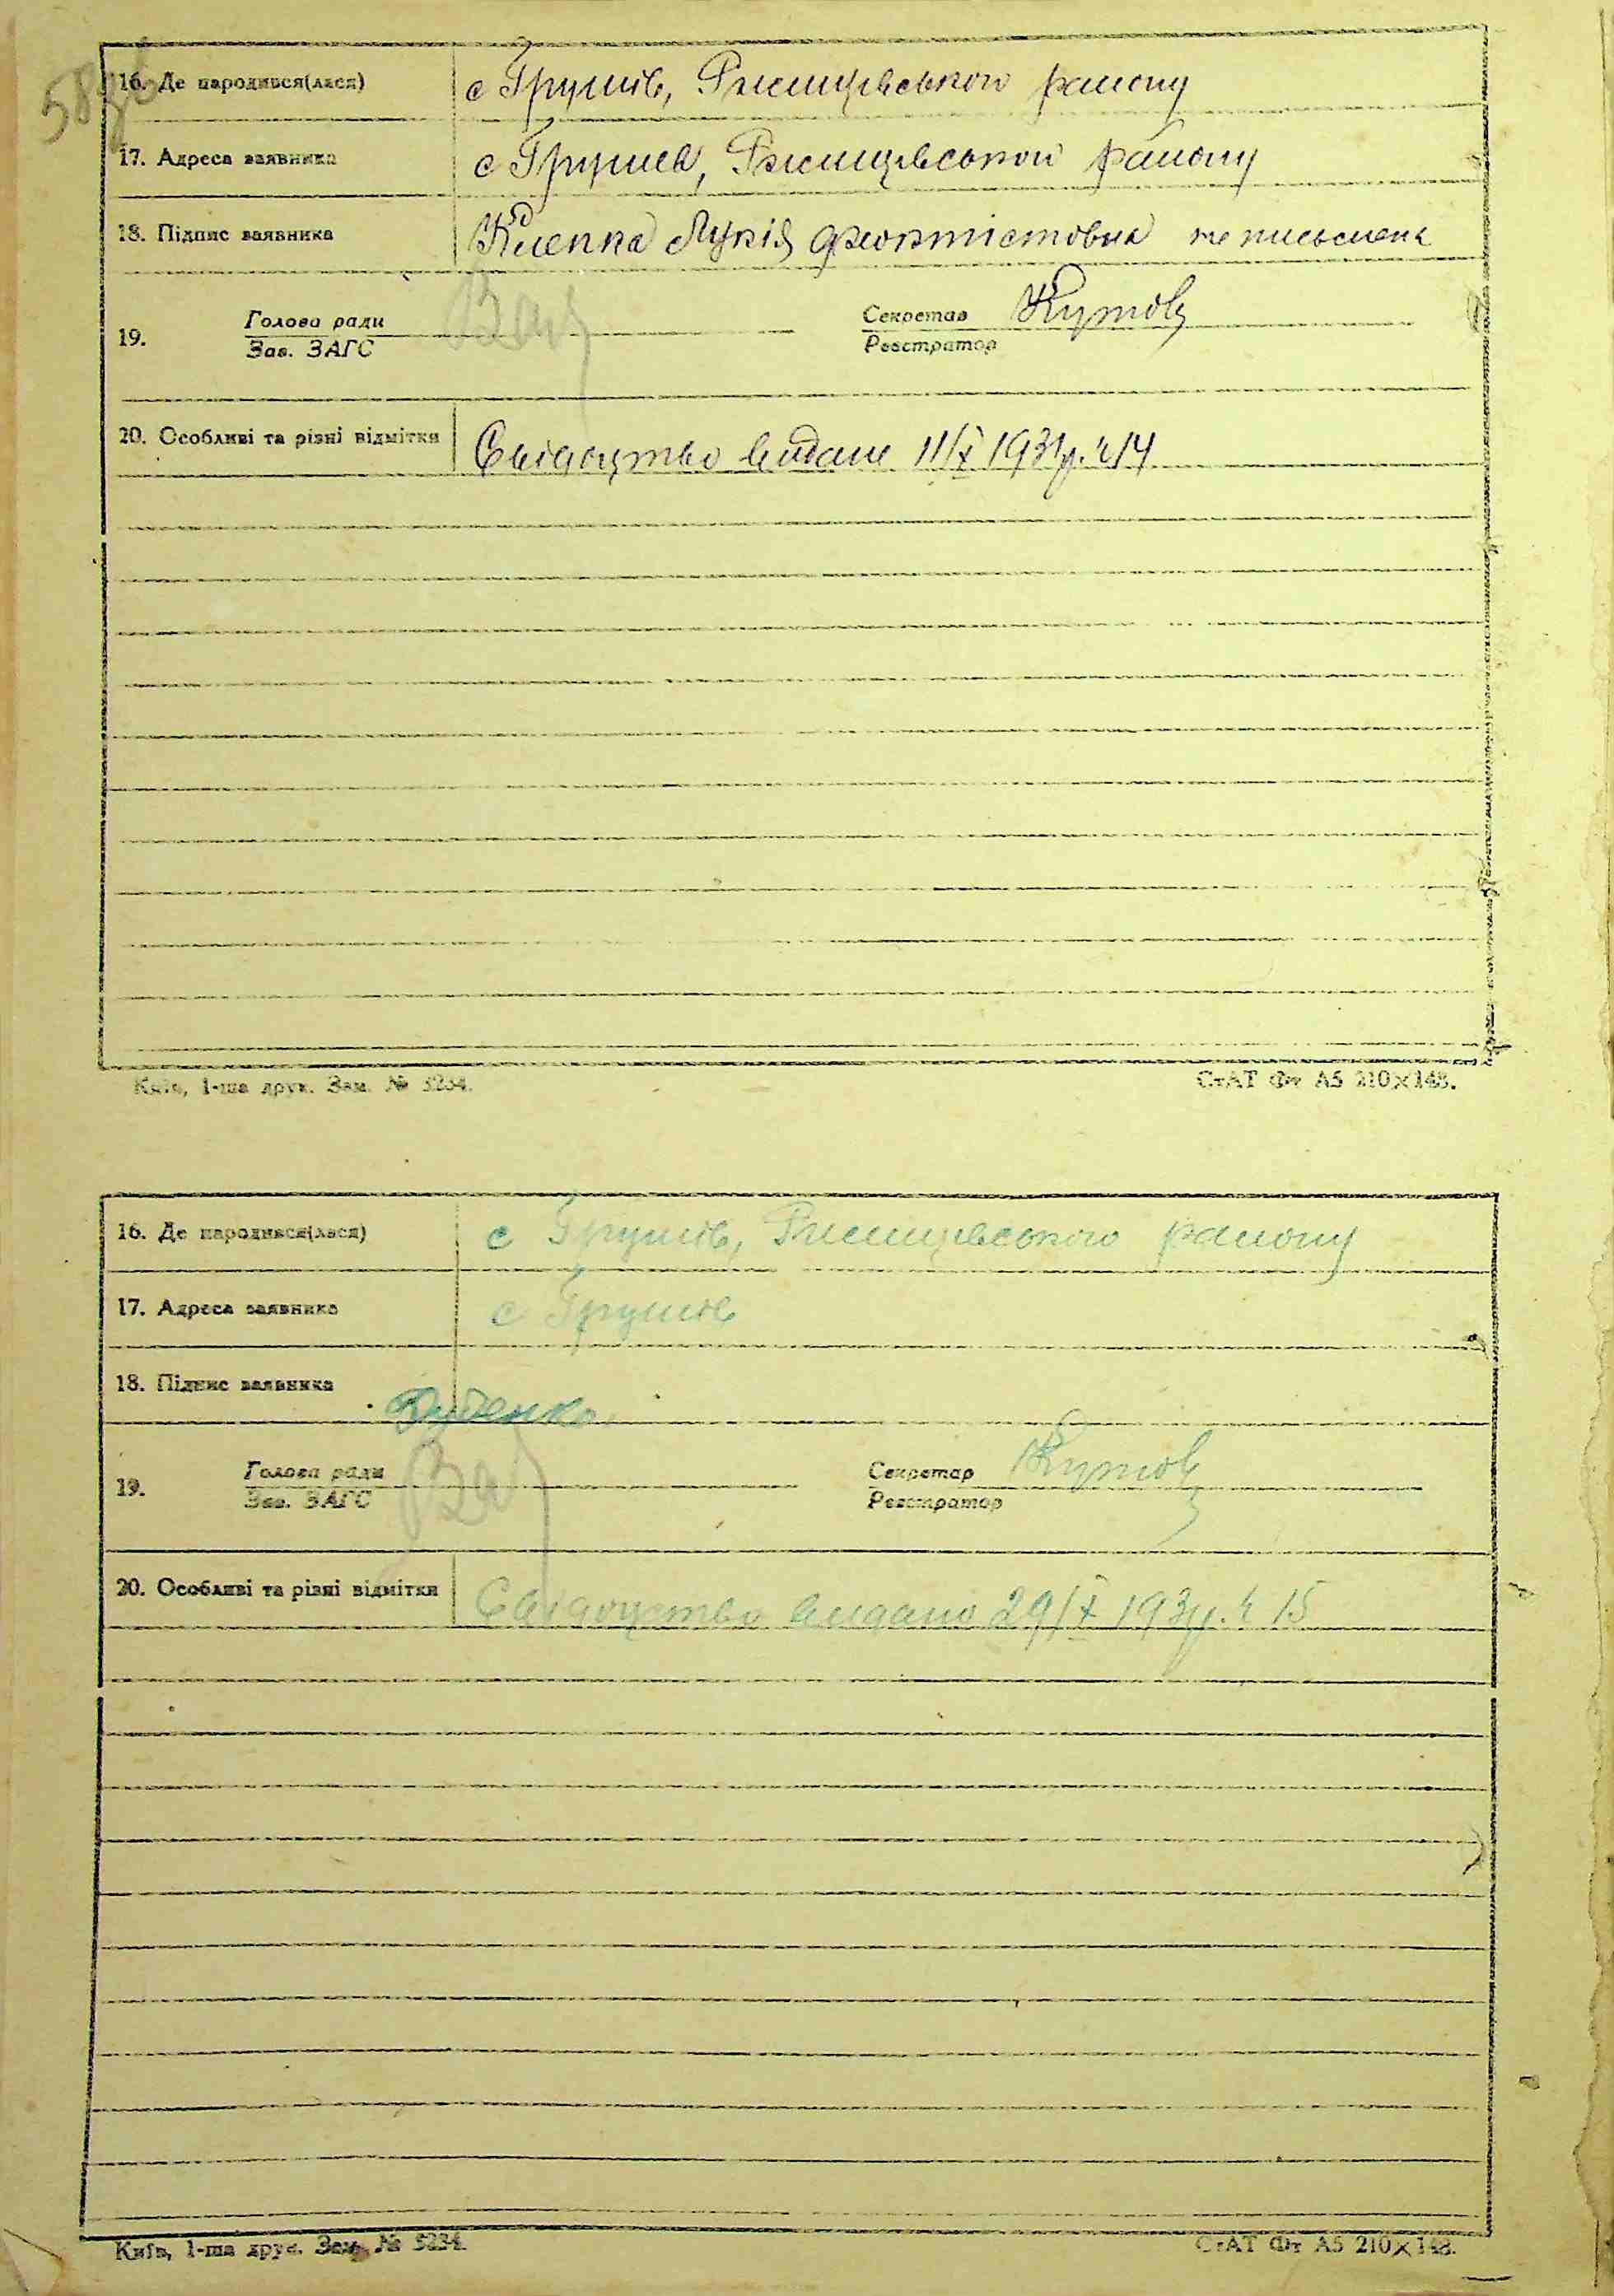 58зв
16. Де народився(лася) с Грушів, Ржищівського району
17. Адреса заявника с Грушів, Ржищівської району
18. Підпис заявника Клепка Лукія Феоктістовна не письмена
19. Голова ради Секретар Кутов
Зав. ЗАГС Реєстратор
20. Особливі та різні відмітки Свідоцтво видане 11/X 1931р. ч 14
Київ, 1-ша друк. Зам. № 5234. СтАТ Фт А5 210×148.
16. Де народився(лася) с Грушів, Ржищівського району
17. Адреса заявника с Грушів
18. Підпис заявника Дуденко
19. Голова ради Секретар Кутов
Зав. ЗАГС Реєстратор
20. Особливі та різні відмітки Свідоцтво видано 29/X 193 р. ч 15
Київ, 1-ша друк. Зам. № 5234. СтАТ Фт А5 210×148.